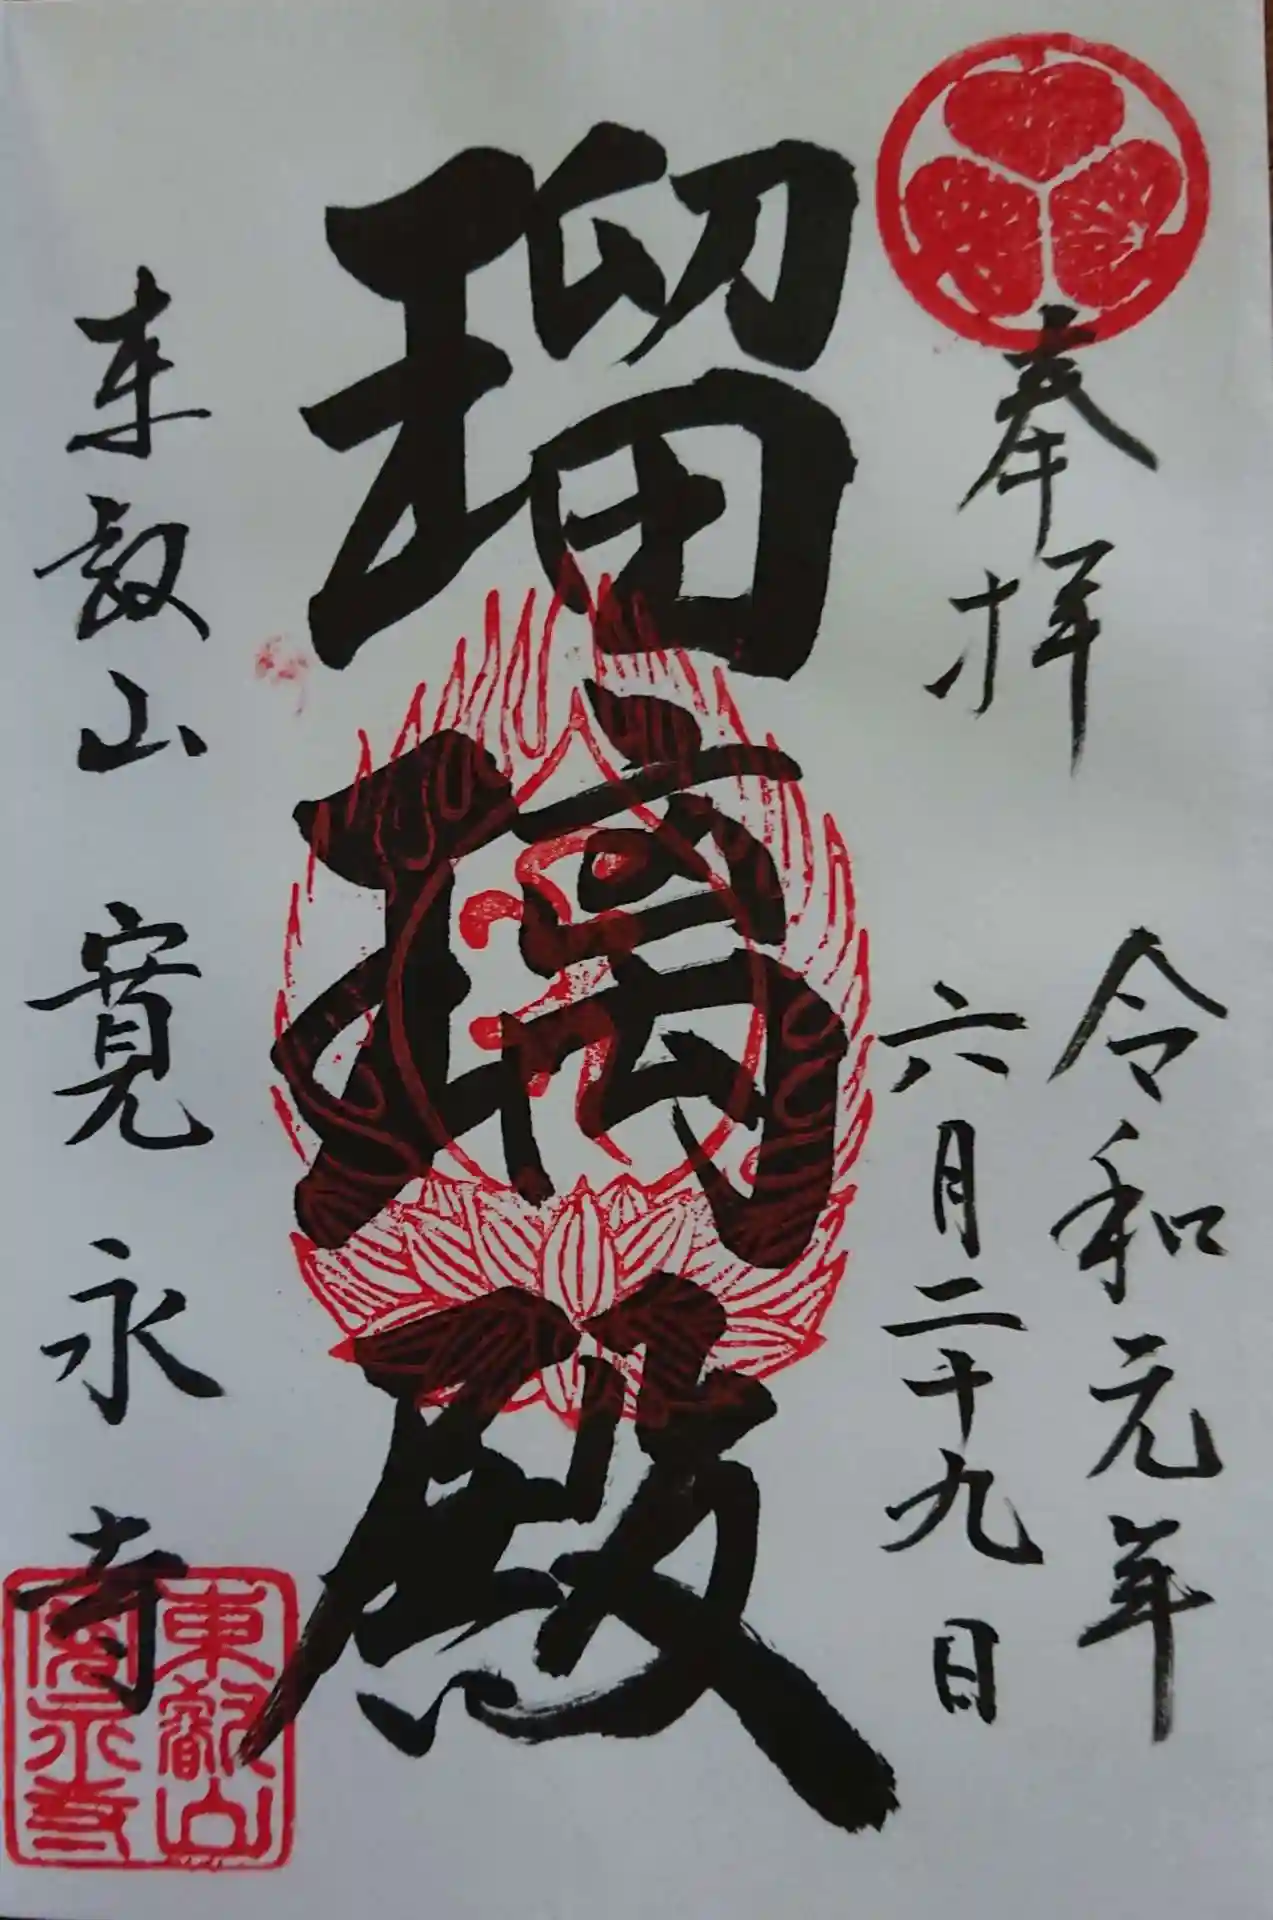 奉拝
令和元年
六月二十九日
瑠璃殿
東叡山 寛永寺
東叡山
寛永寺